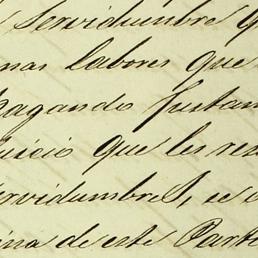 Servidumbre q
nas labores que
pagando justam
juicio que les res
servidumbres, se o
ina de este Parti